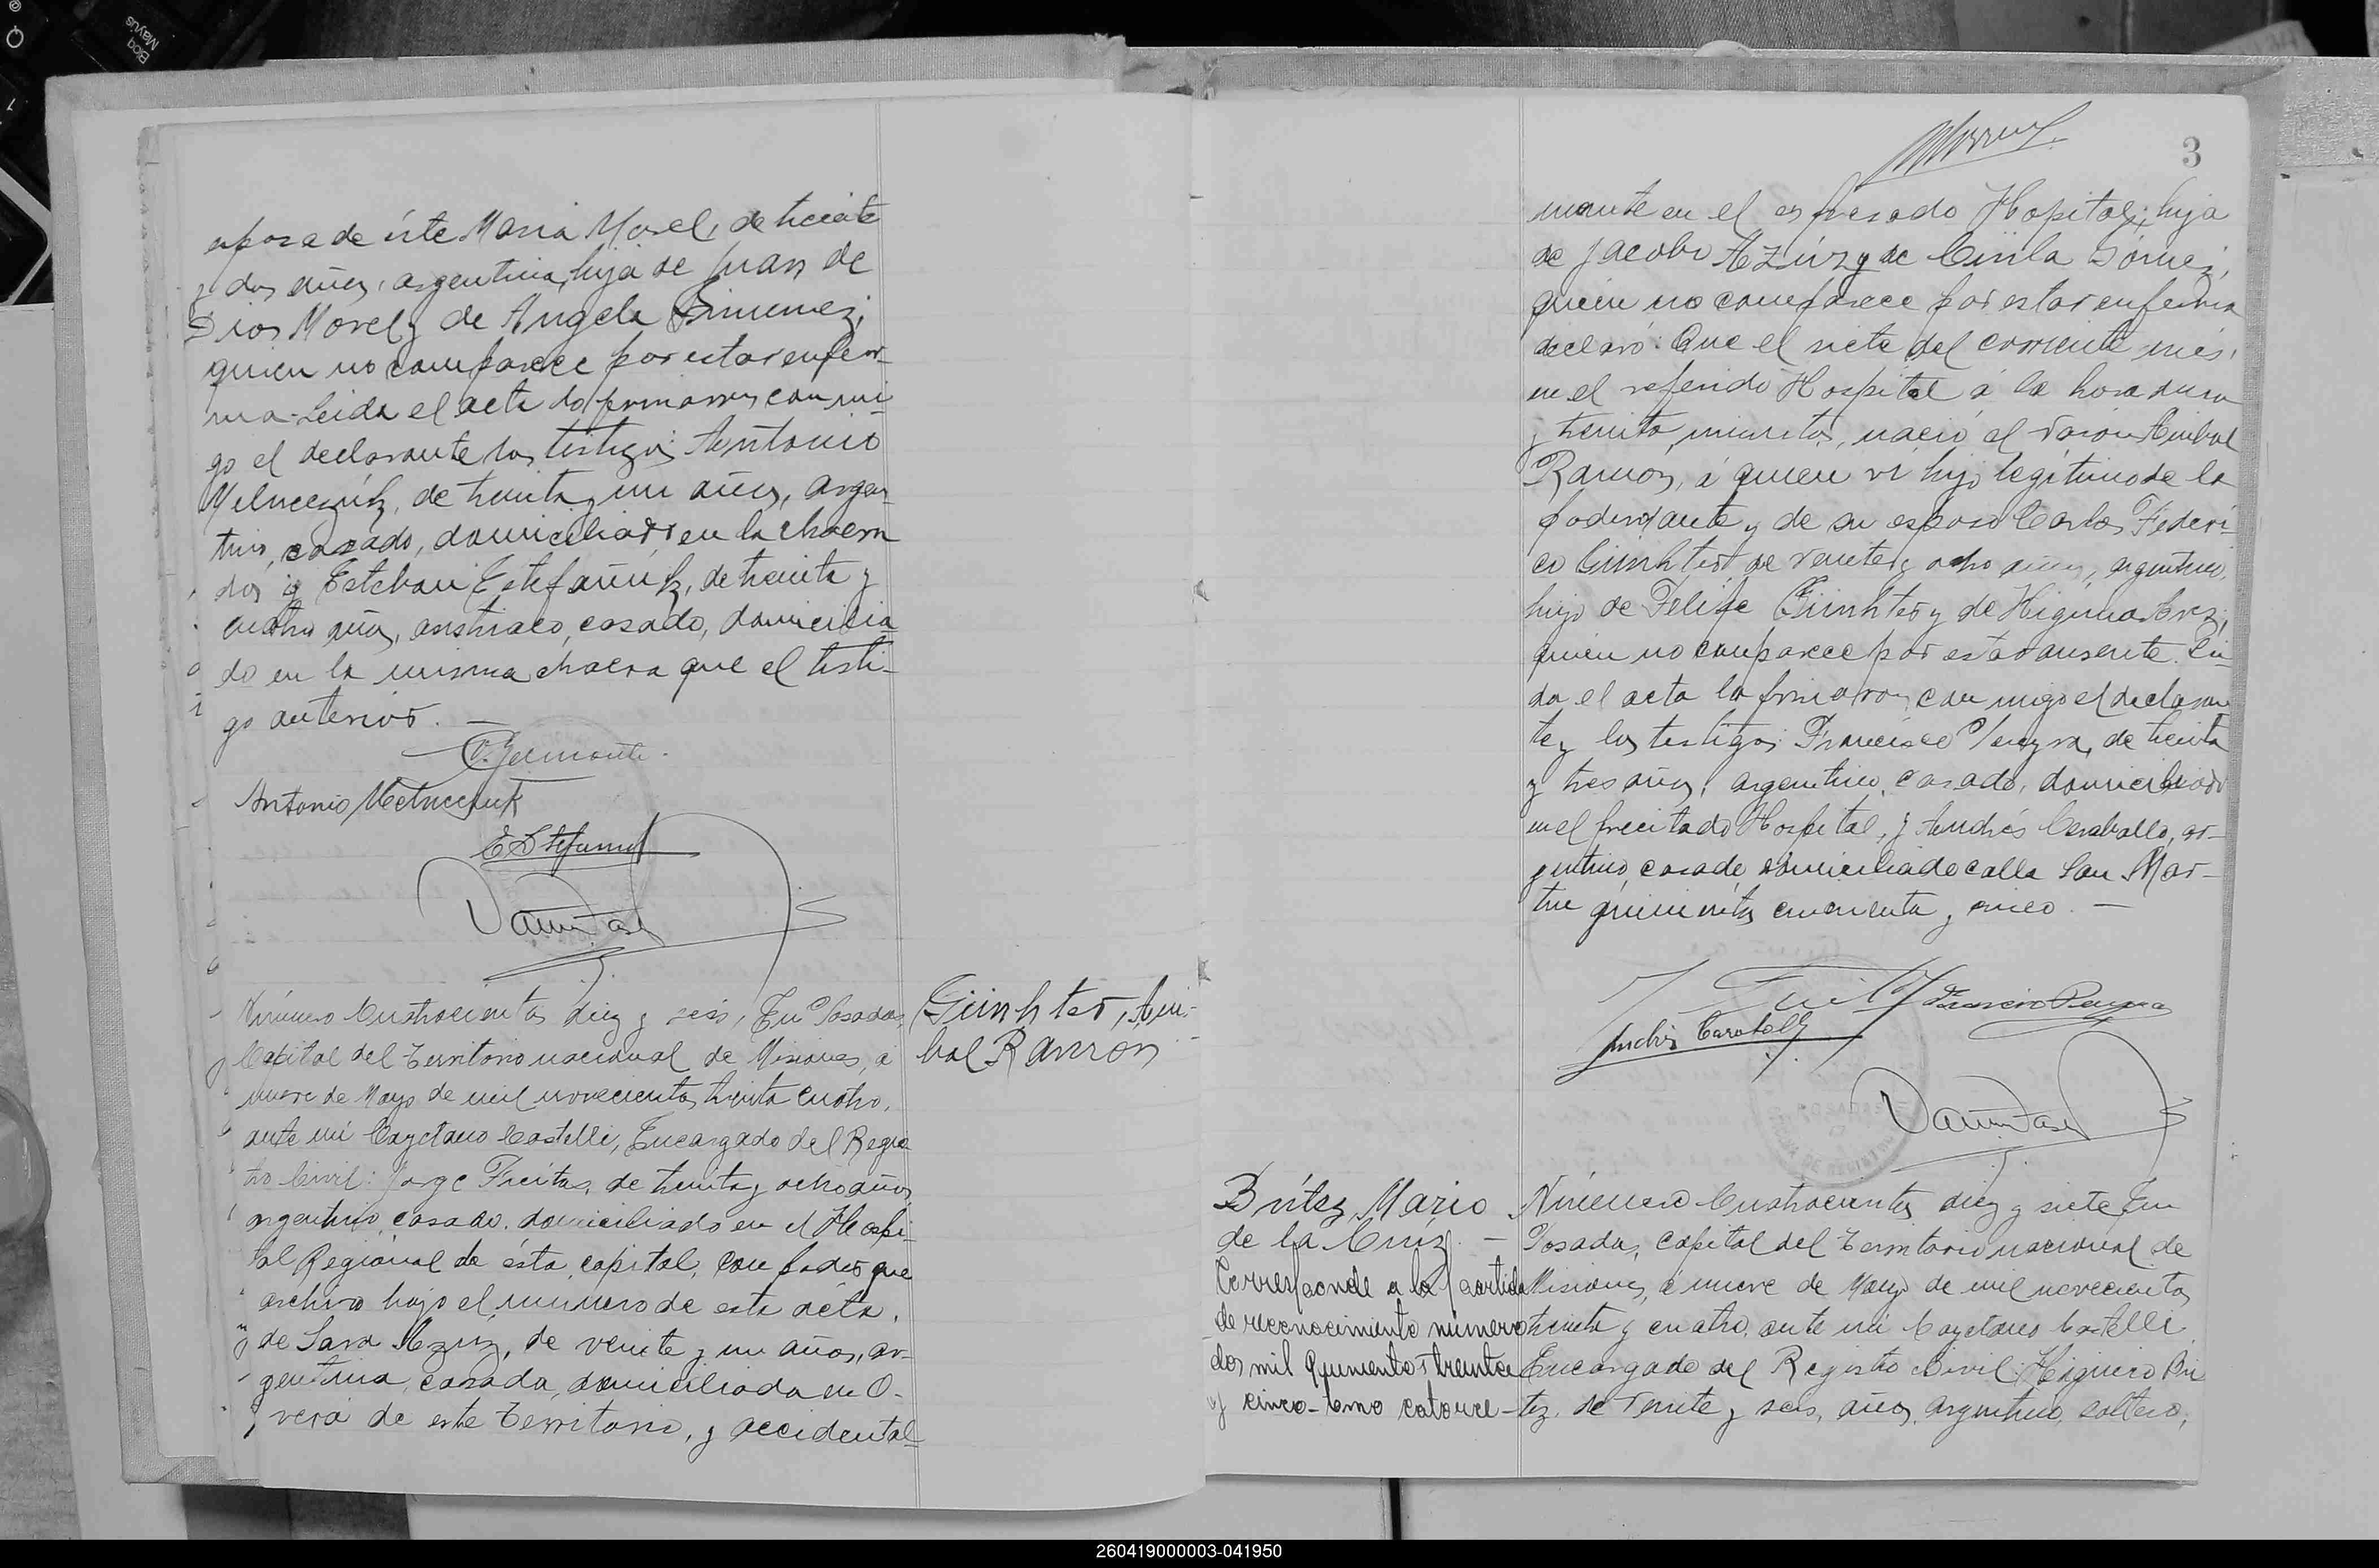 esposa de éste Maria Morel, de treinta
y dos años, argentina, hija de Juan de
Dios Morel y de Angela Gimenez;
quien no comparece por estar enfer-
ma. Leida el acta la firmaron con mi-
go el declarante los testigos: Antonio
de treinta y un años, argen-
tino, casado, domiciliado en la chacra
dos y Esteban Estefañuk, de treinta y
cuatro años, austriaco, casado, domicilia-
do en la misma chacra que el testi-
go anterior. —
Antonio
Número Cuatrocientos diez y seis, En Posadas,
Capital del Territorio nacional de Misiones, á
nueve de Mayo de mil novecientos treinta cuatro,
ante mi Cayetano Castelli, Encargado del Regis-
tro Civil: Jorge Freitas, de treinta y ocho años,
argentino, casado, domiciliado en el Hospi-
tal Regional de ésta capital, con poder que
archivo bajo el número de esta acta,
de Sara Azuz, de veinte y un años, ar-
gentina, casada, domiciliada en O-
verá de este Territorio, y accidental-
Günhter, Aní-
bal Ramon
3
mente en el expresado Hospital; hija
de Jacobo Azúz y de Cirila Gómez,
quien no comparece por estar enferma
declaró: Que el siete del corriente mes,
en el referido Hospital á la hora una
y treinta minutos, nació el varón Anibal
Ramón, á quien vi hijo legítimo de la
poderdante y de su esposo Carlos Federi-
co Günhter de veinte y ocho años, argentino,
hijo de Felipe Günhter y de Higinia
quien no comparece por estar ausente. Lei-
da el acta la firmaron con migo el declaran-
te y los testigos: Francisco Pereyra, de treinta
y tres años, argentino, casado, domiciliado
en el precitado Hospital, y Andrés Caraballo, ar-
gentino, casado domiciliado calle San Mar-
tin quinientos cincuenta y cinco. —
Francisco Pereyra
Andrés Caraballo
Brítez, Mario
de la Cruz. —
Corresponde a la partida
de reconocimiento número
dos mil quinientos treinta
y cinco - tomo catorce -
Número Cuatrocientos diez y siete En
Posadas, capital del Territorio nacional de
Misiones, a nueve de Mayo de mil novecientos
treinta y cuatro, ante mi Cayetano Castelli
Encargado del Registro Civil: Higinio Bri-
tez, de veinte y seis, años, argentino, soltero,
260419000003-041950